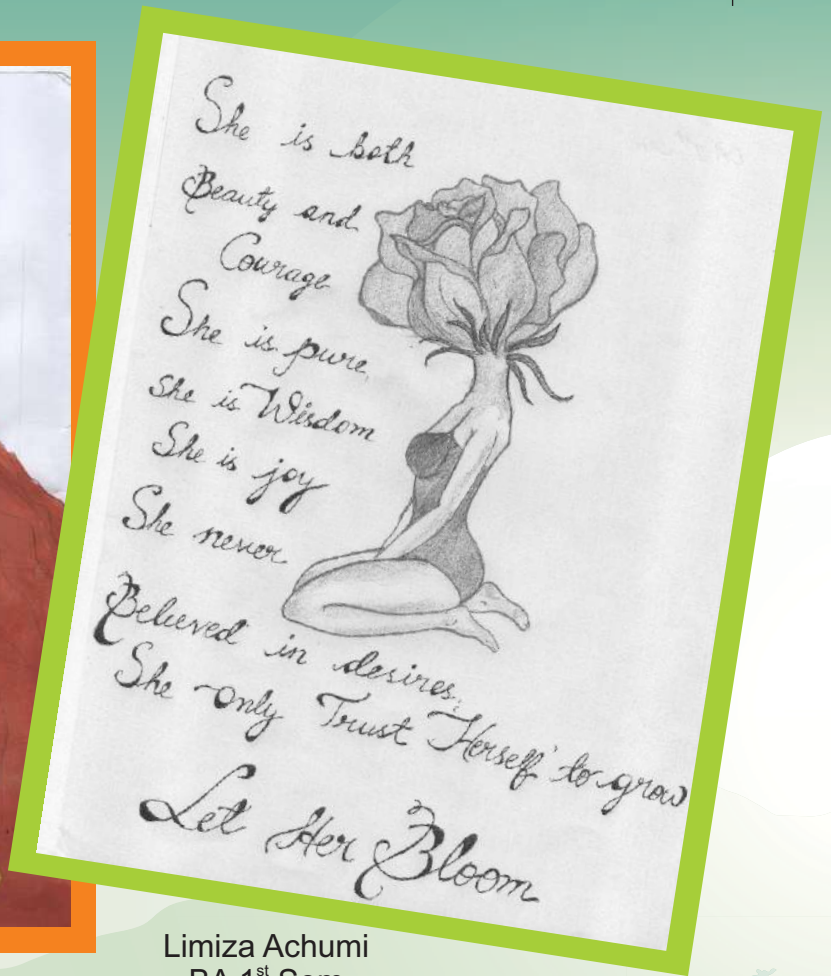 She is both
Beauty and
Courage
She is pure,
she is Wisdom
She is joy
She never
Believed in desires,
She only Trust 'Herself' to grow
Let Her Bloom
Limiza Achumi
BA 1st Sem